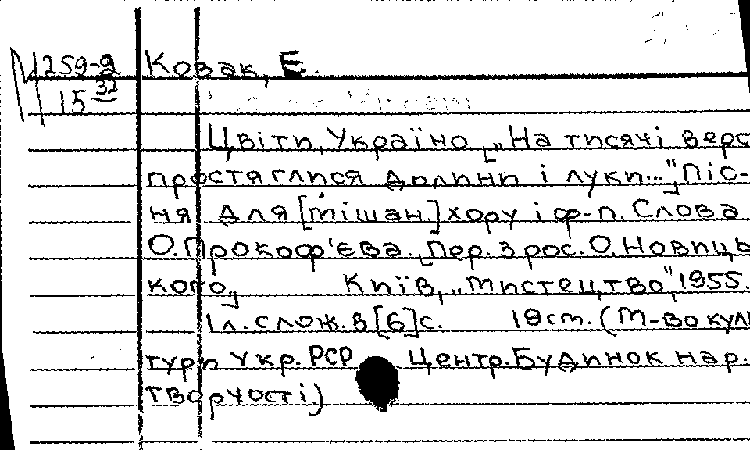 М 259-9 Ковак, Е.
15 32
Цвіти, Україно, [„На тисячі верс
простяглися долини і луки..."] Піс-
ня для [мішан.] хору і ф-п. Слова
О. Прокоф'єва. [Пер. з рос. О. Новиць
кого.] Київ, „Мистецтво", 1955.
1 л. слож. в [6] с. 19 cm. (М-во куль
тури Укр. РСР Центр. Будинок нар.
творчості.)